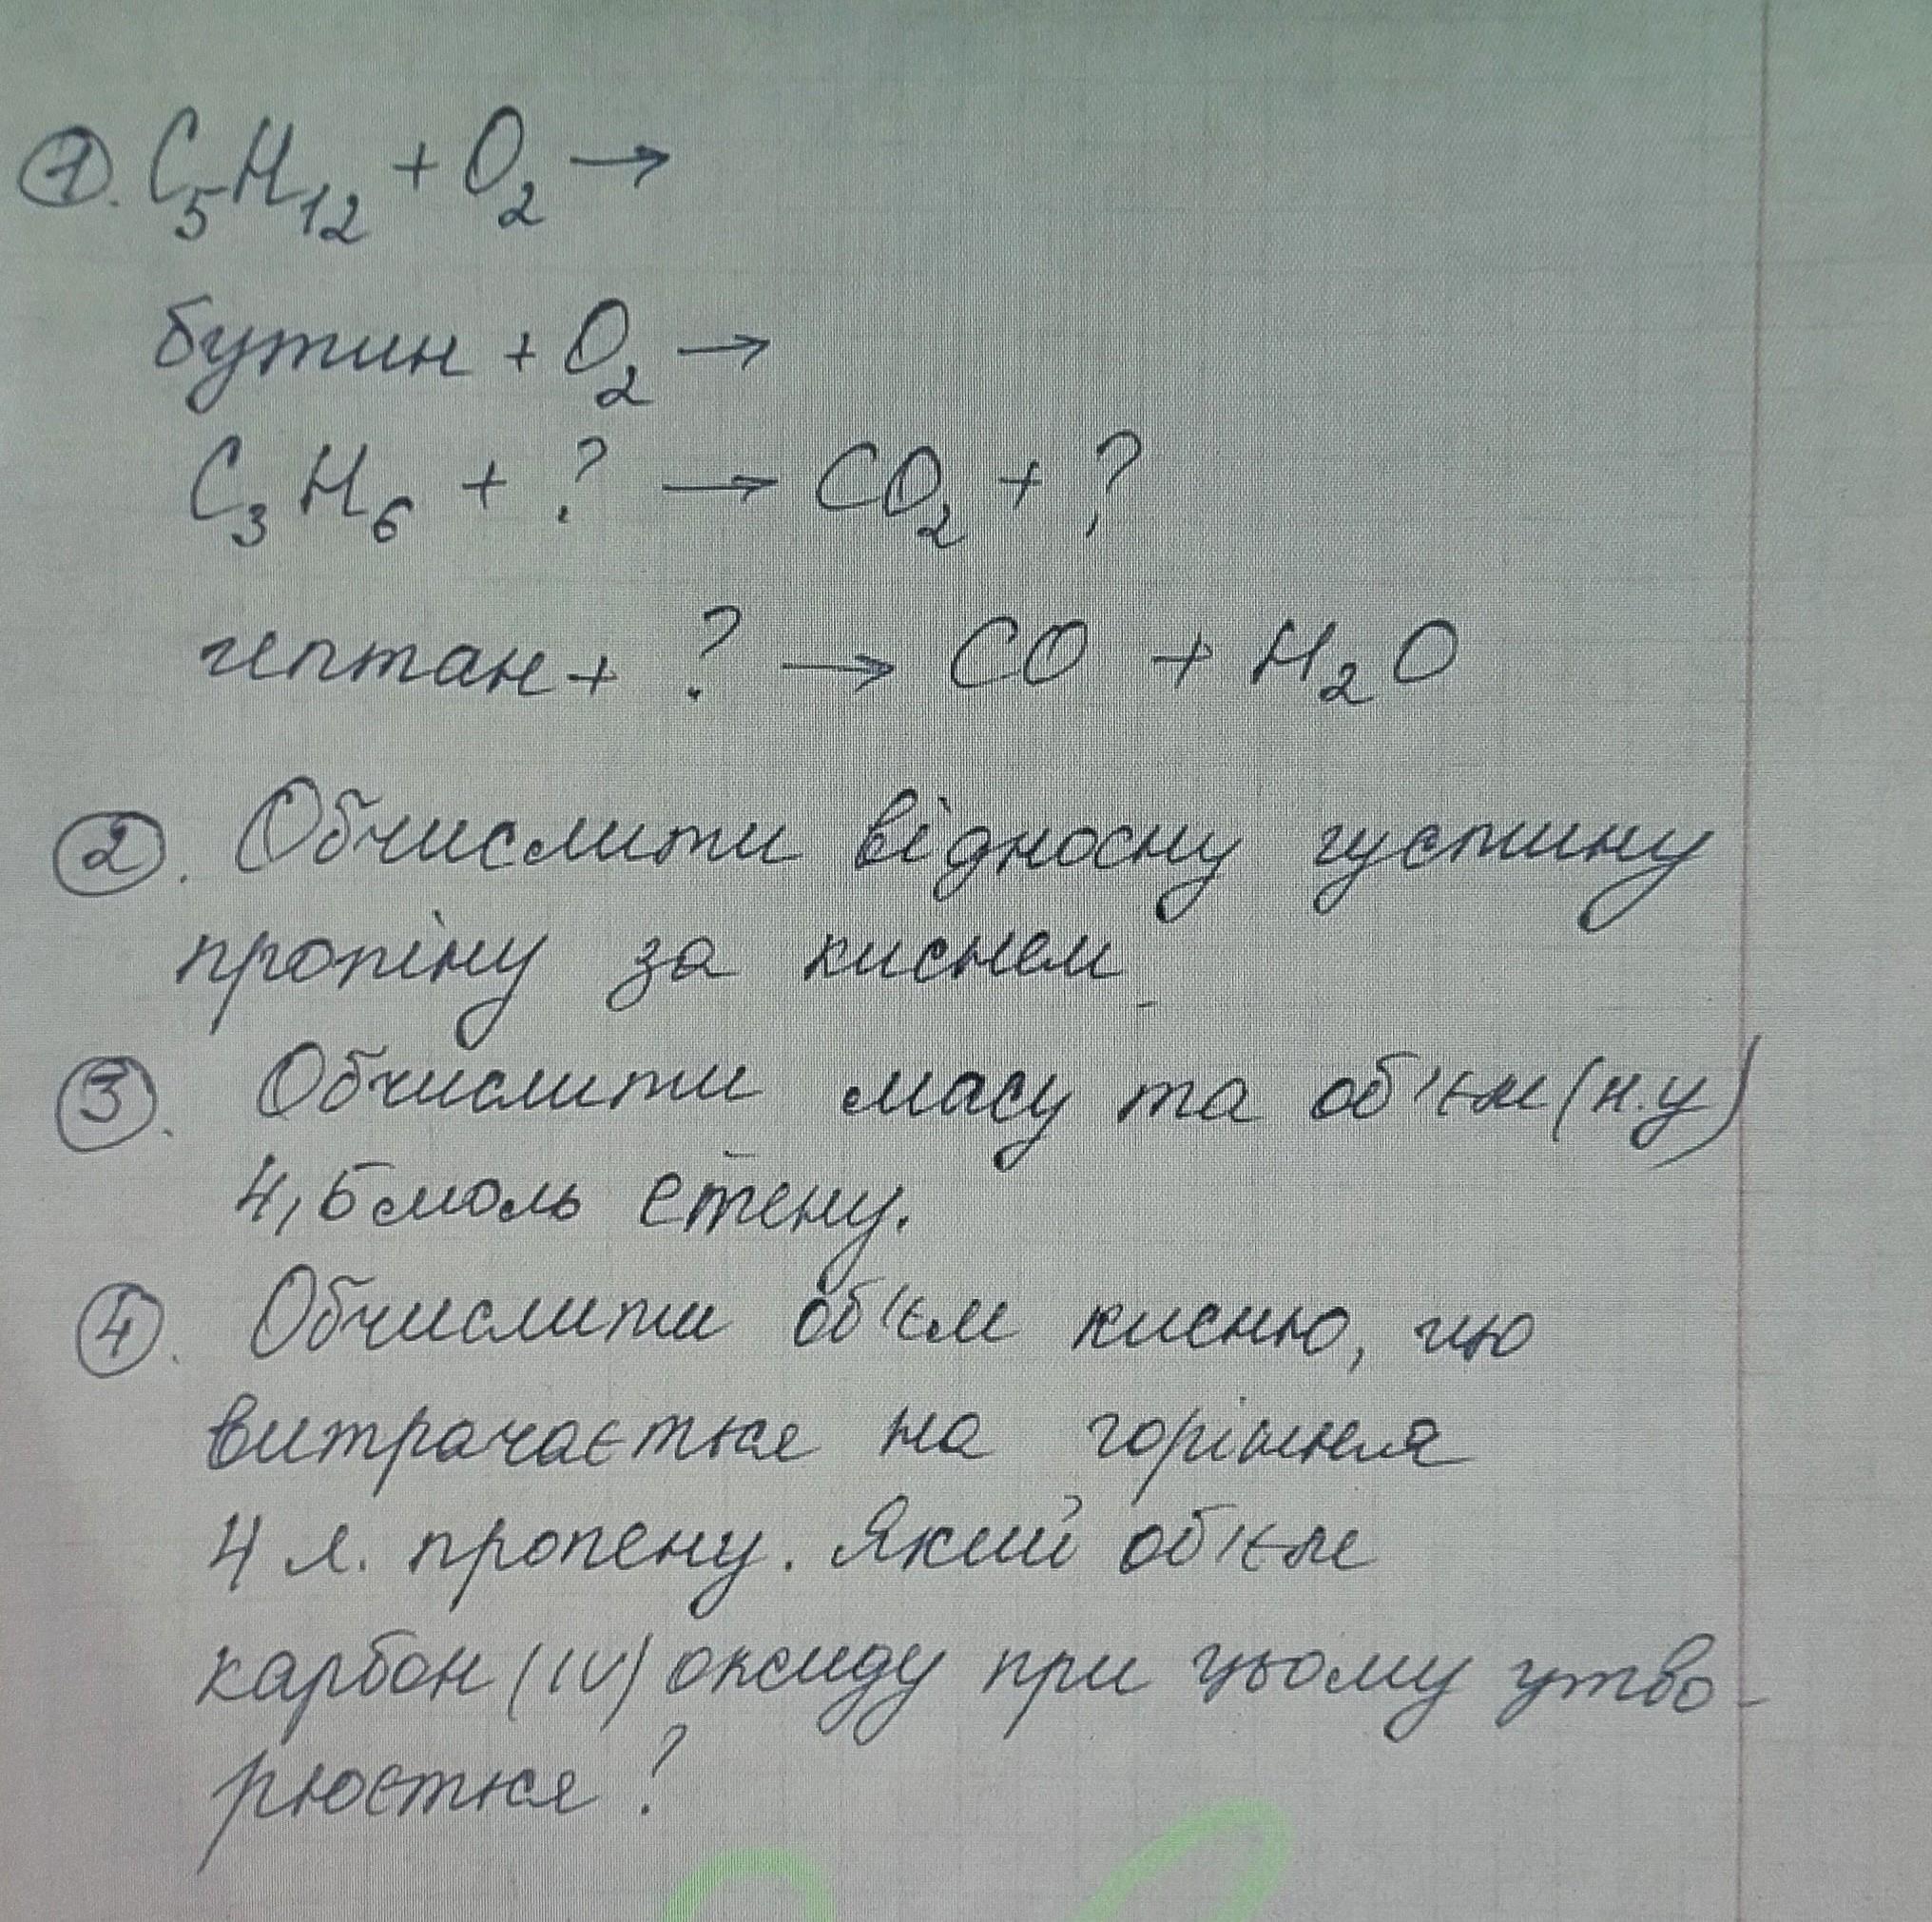 1. C₅H₁₂ + O₂ →
бутин + O₂ →
C₃H₆ + ? → CO₂ + ?
гептан + ? → CO + H₂O
2. Обчислити відносну густину
пропіну за киснем
3. Обчислити масу та об'єм (н.у)
4,5 моль етену.
4. Обчислити об'єм кисню, що
витрачається на горіння
4 л. пропену. Який об'єм
карбон (IV) оксиду при цьому утво-
рюється?